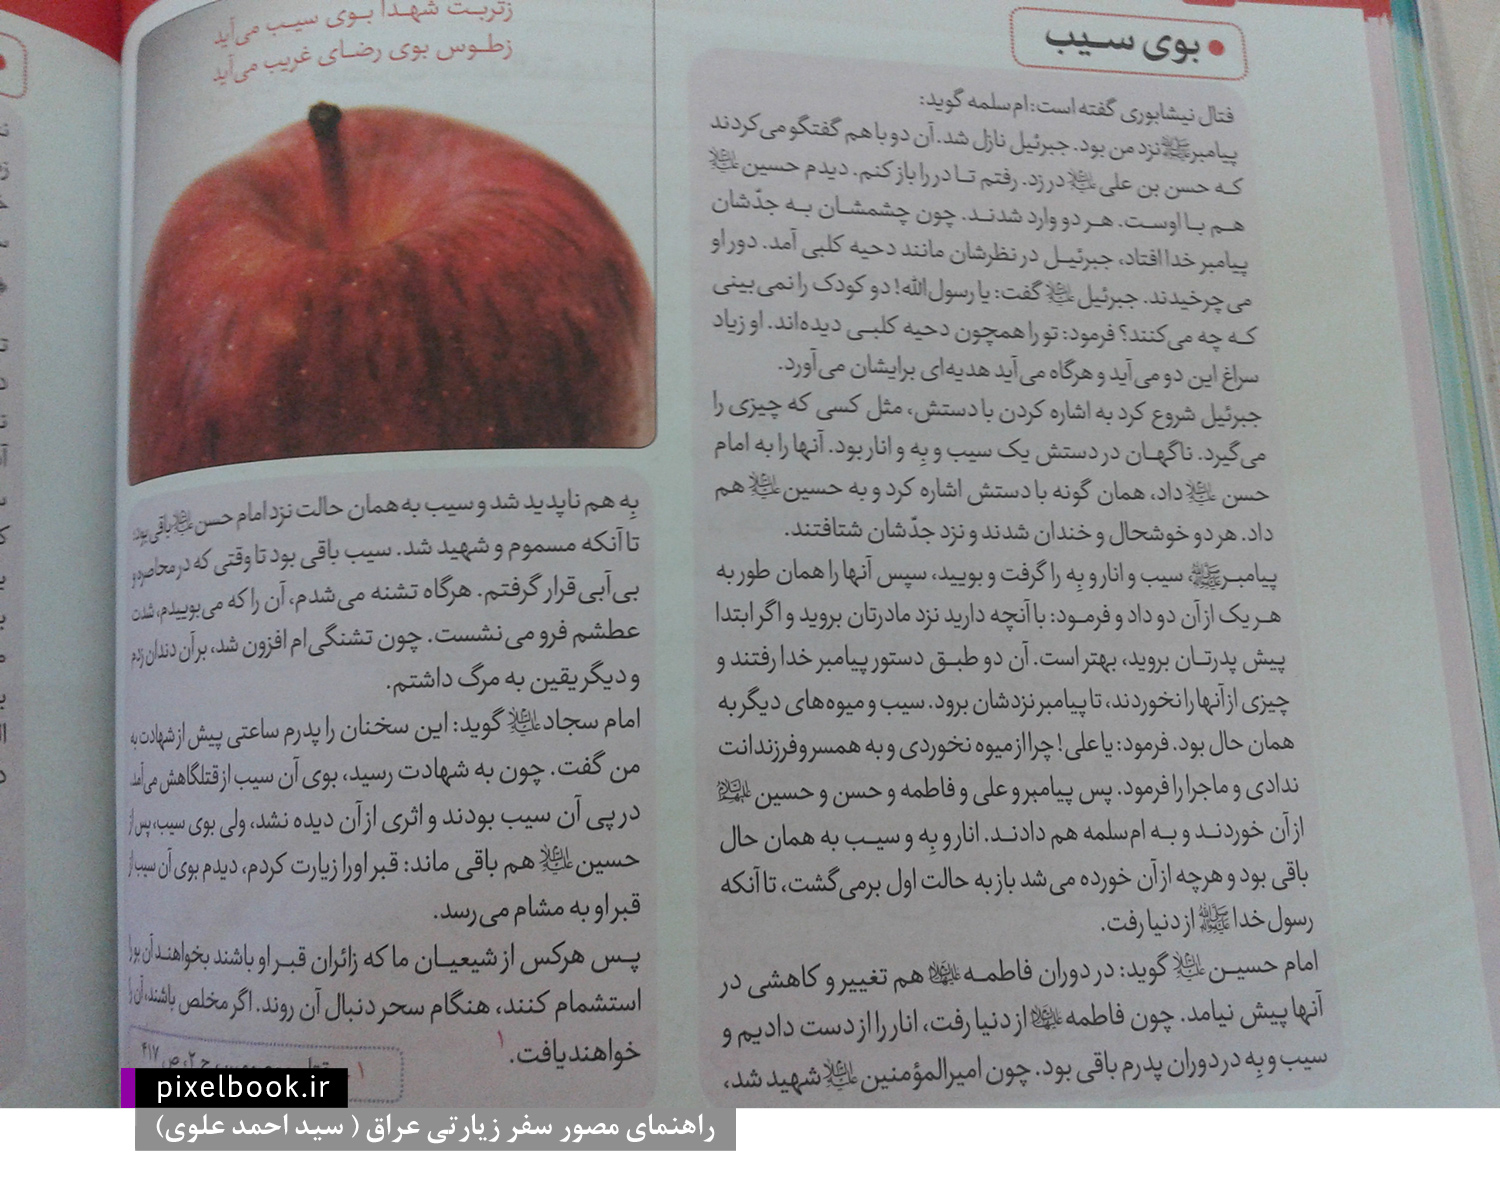 بوی سیب
فتال نیشابوری گفته است: ام سلمه گوید:
پیامبرﷺ نزد من بود. جبرئیل نازل شد. آن دو با هم گفتگو می‌کردند
که حسن بن علی علیه‌السلام در زد. رفتم تا در را باز کنم. دیدم حسین علیه‌السلام
هم با اوست. هر دو وارد شدند. چون چشمشان به جدّشان
پیامبر خدا افتاد، جبرئیل در نظرشان مانند دحیه کلبی آمد. دور او
می‌چرخیدند. جبرئیل علیه‌السلام گفت: یا رسول الله! دو کودک را نمی‌بینی
که چه می‌کنند؟ فرمود: تو را همچون دحیه کلبی دیده‌اند. او زیاد
سراغ این دو می‌آید و هرگاه می‌آید هدیه‌ای برایشان می‌آورد.
جبرئیل شروع کرد به اشاره کردن با دستش، مثل کسی که چیزی را
می‌گیرد. ناگهان در دستش یک سیب و بِه و انار بود. آنها را به امام
حسن علیه‌السلام داد، همان گونه با دستش اشاره کرد و به حسین علیه‌السلام هم
داد. هر دو خوشحال و خندان شدند و نزد جدّشان شتافتند.
پیامبرﷺ، سیب و انار و بِه را گرفت و بویید، سپس آنها را همان طور به
هر یک از آن دو داد و فرمود: با آنچه دارید نزد مادرتان بروید و اگر ابتدا
پیش پدرتان بروید، بهتر است. آن دو طبق دستور پیامبر خدا رفتند و
چیزی از آنها را نخوردند، تا پیامبر نزدشان برود. سیب و میوه‌های دیگر به
همان حال بود. فرمود: یا علی! چرا از میوه نخوردی و به همسر و فرزندانت
ندادی و ماجرا را فرمود. پس پیامبر و علی و فاطمه و حسن و حسین علیهم‌السلام
از آن خوردند و به ام سلمه هم دادند. انار و بِه و سیب به همان حال
باقی بود و هرچه از آن خورده می‌شد باز به حالت اول برمی‌گشت، تا آنکه
رسول خدا ﷺ از دنیا رفت.
امام حسین علیه‌السلام گوید: در دوران فاطمه علیهاالسلام هم تغییر و کاهشی در
آنها پیش نیامد. چون فاطمه علیهاالسلام از دنیا رفت، انار را از دست دادیم و
سیب و بِه در دوران پدرم باقی بود. چون امیرالمؤمنین علیه‌السلام شهید شد،
زتربت شهدا بوی سیب می‌آید
زطوس بوی رضای غریب می‌آید
بِه هم ناپدید شد و سیب به همان حالت نزد امام حسن علیه‌السلام باقی بود؛
تا آنکه مسموم و شهید شد. سیب باقی بود تا وقتی که در محاصره و
بی‌آبی قرار گرفتم. هرگاه تشنه می‌شدم، آن را که می‌بوییدم، شدت
عطشم فرو می‌نشست. چون تشنگی‌ام افزون شد، بر آن دندان زدم
و دیگر یقین به مرگ داشتم.
امام سجاد علیه‌السلام گوید: این سخنان را پدرم ساعتی پیش از شهادت به
من گفت. چون به شهادت رسید، بوی آن سیب از قتلگاهش می‌آمد.
در پی آن سیب بودند و اثری از آن دیده نشد، ولی بوی سیب، پس از
حسین علیه‌السلام هم باقی ماند: قبر او را زیارت کردم، دیدم بوی آن سیب از
قبر او به مشام می‌رسد.
پس هرکس از شیعیان ما که زائران قبر او باشند بخواهند آن بو را
استشمام کنند، هنگام سحر دنبال آن روند. اگر مخلص باشند، آن را
خواهند یافت.۱
ج ۲، ص ۴۱۷
pixelbook.ir
راهنمای مصور سفر زیارتی عراق ( سید احمد علوی)